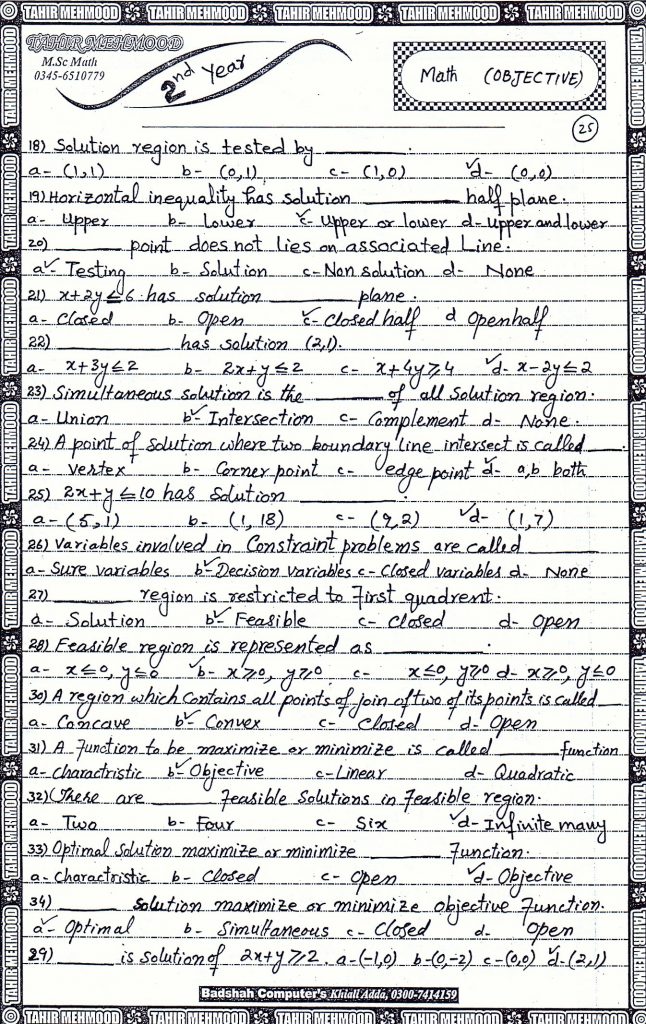 TAHIR MEHMOOD TAHIR MEHMOOD TAHIR MEHMOOD TAHIR MEHMOOD TAHIR MEHMOOD
TAHIR MEHMOOD
M.Sc Math
0345-6510779
2nd Year
Math (OBJECTIVE)
25
18) Solution region is tested by ______.
a- (1,1) b- (0,1) c- (1,0) ✓d- (0,0)
19) Horizontal inequality has solution ______ half plane.
a- Upper b- Lower ✓c- Upper or lower d- Upper and lower
20) ______ point does not lies on associated Line.
a✓- Testing b- Solution c- Non solution d- None
21) x+2y≤6 has solution ______ plane.
a- Closed b- Open ✓c- Closed half d Open half
22) ______ has solution (2,1).
a- x+3y≤2 b- 2x+y≤2 c- x+4y≥4 ✓d- x-2y≤2
23) Simultaneous solution is the ______ of all solution region.
a- Union b✓- Intersection c- Complement d- None.
24) A point of solution where two boundary line intersect is called ___.
a- Vertex b- Corner point c- edge point ✓d- a,b both
25) 2x+y≤10 has solution ______.
a- (5,1) b- (1,18) c- (9,2) ✓d- (1,7)
26) Variables involved in Constraint problems are called ______
a- Sure variables b✓- Decision variables c- Closed variables d- None
27) ______ region is restricted to First quadrent.
a- Solution b✓- Feasible c- Closed d- Open
28) Feasible region is represented as ______.
a- x≤0, y≤0 ✓b- x≥0, y≥0 c- x≤0, y≥0 d- x≥0, y≤0
30) A region which contains all points of join of two of its points is called ___
a- Concave b✓- Convex c- Closed d- Open
31) A Function to be maximize or minimize is called ______ function
a- Charactristic b✓- Objective c- Linear d- Quadratic
32) There are ______ feasible Solutions in Feasible region.
a- Two b- Four c- Six ✓d- Infinite many
33) Optimal solution maximize or minimize ______ Function.
a- Charactristic b- Closed c- Open ✓d- Objective
34) ______ solution maximize or minimize objective Function.
a✓- Optimal b- Simultaneous c- Closed d- Open
29) ______ is solution of 2x+y≥2. a- (-1,0) b- (0,-2) c- (0,0) ✓d- (2,1)
Badshah Computer's Khiali Adda, 0300-7414159
TAHIR MEHMOOD TAHIR MEHMOOD TAHIR MEHMOOD TAHIR MEHMOOD TAHIR MEHMOOD